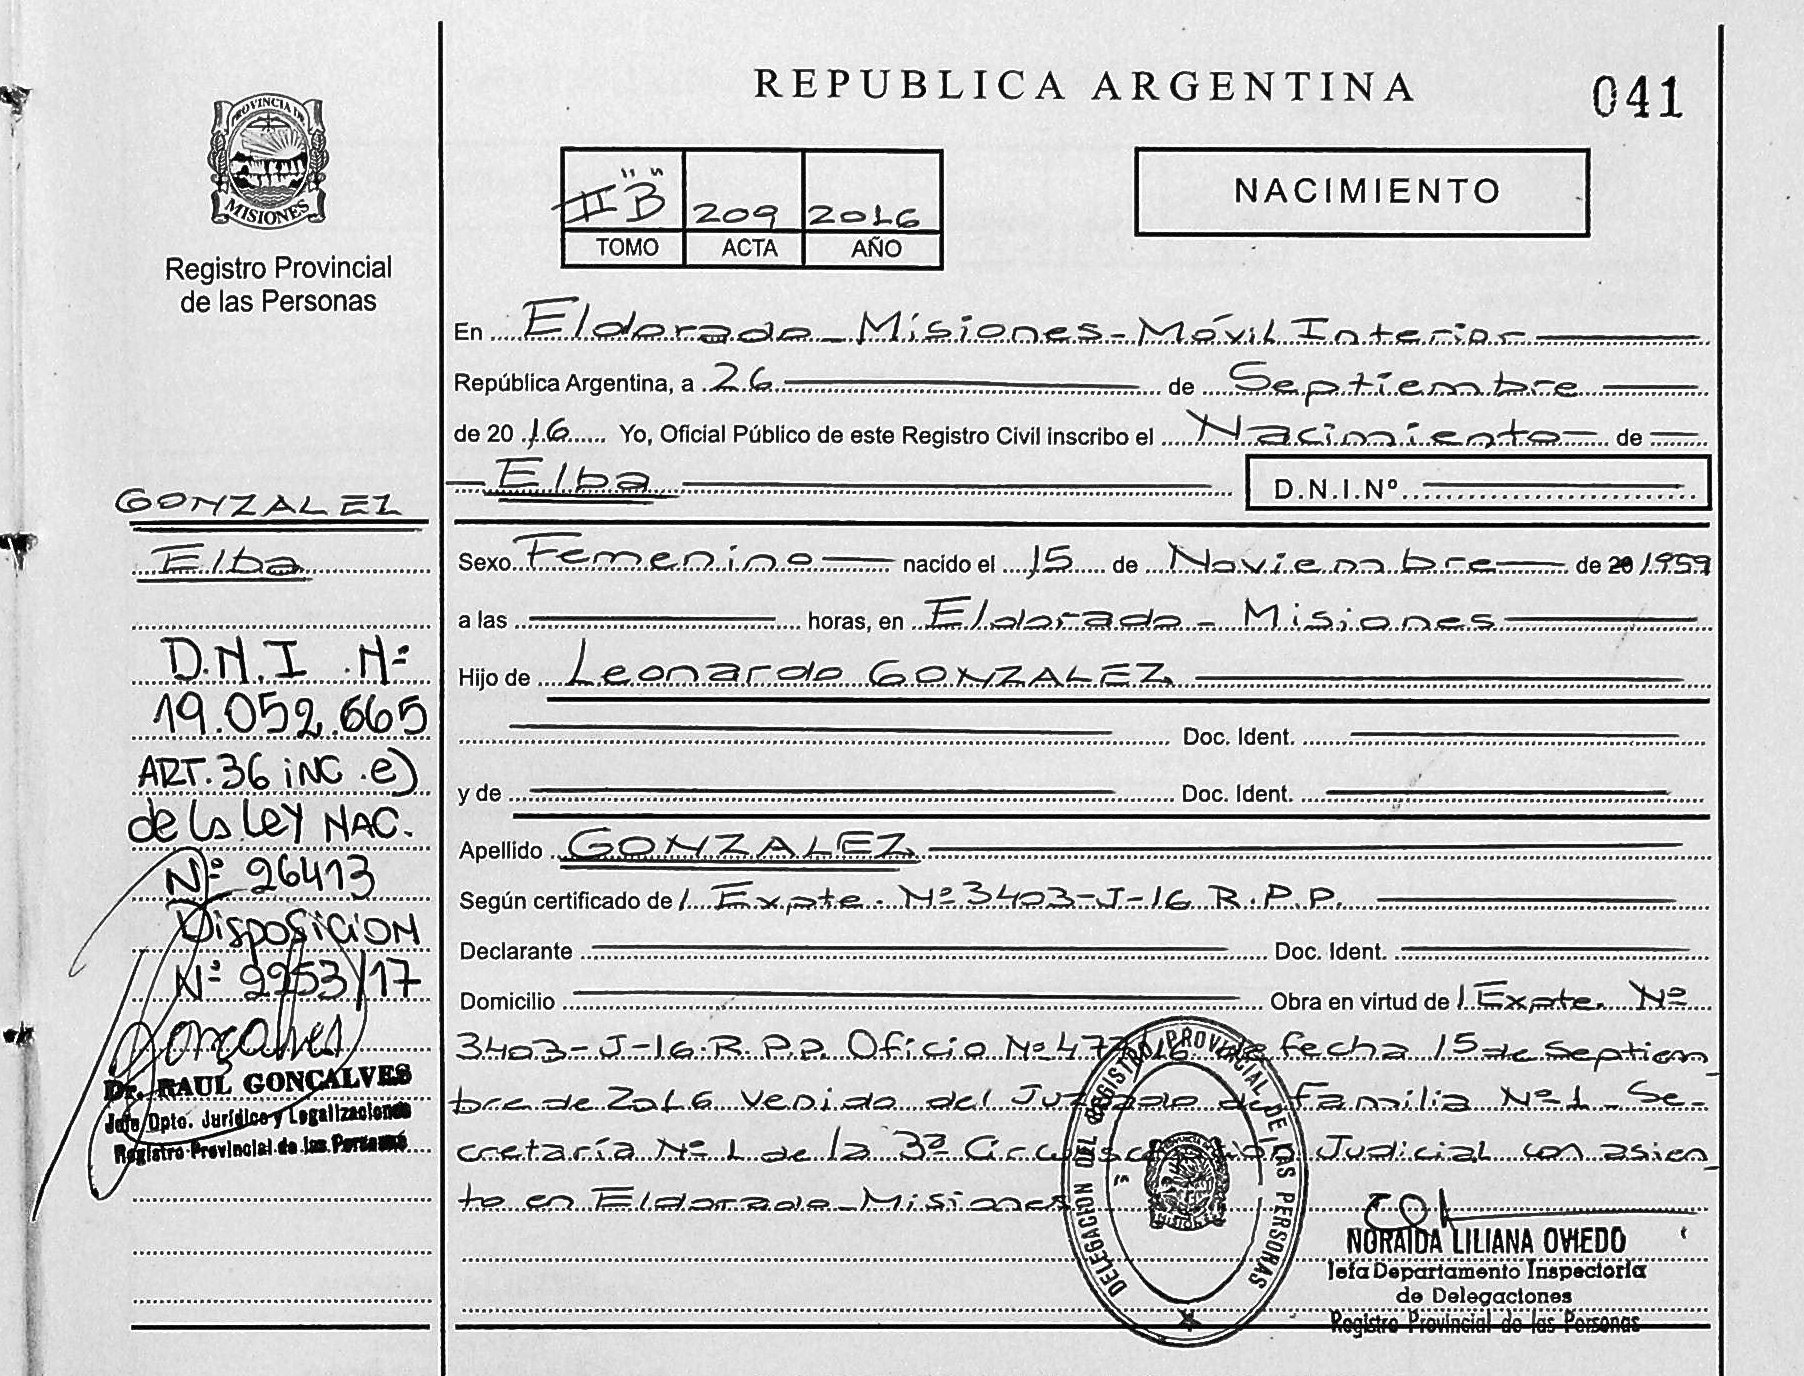 REPUBLICA ARGENTINA
041
PROVINCIA DE
MISIONES
Registro Provincial
de las Personas
II "B" 209 2016
TOMO ACTA AÑO
NACIMIENTO
En Eldorado - Misiones - Móvil Interior
República Argentina, a 26 de Septiembre
de 20 16 Yo, Oficial Público de este Registro Civil inscribo el Nacimiento de
Elba
D.N.I.Nº
GONZALEZ
Elba
D.N.I Nº
19.052.665
ART. 36 iNC. e)
de la LEY NAC.
Nº 26413
DISPOSICION
Nº 2253/17
Gonçalves
Dr. RAUL GONÇALVES
Jefe Dpto. Jurídico y Legalizaciones
Registro Provincial de las Personas
Sexo Femenino nacido el 15 de Noviembre de 20 1959
a las horas, en Eldorado - Misiones
Hijo de Leonardo GONZALEZ
Doc. Ident.
y de Doc. Ident.
Apellido GONZALEZ
Según certificado de / Expte. Nº 3403-J-16 R.P.P.
Declarante Doc. Ident.
Domicilio Obra en virtud de / Expte. Nº
3403-J-16.R.P.P. Oficio Nº fecha 15 de Septiem
bre de 2016 venido del Juzgado de Familia Nº 1 - Se-
cretaría Nº 1 de la 3ª Circunscripción Judicial con asien
to en Eldorado - Misiones
DELEGACION DEL REGISTRO PROVINCIAL DE LAS PERSONAS
MISIONES
NORAIDA LILIANA OVIEDO
Jefa Departamento Inspectoría
de Delegaciones
Registro Provincial de las Personas